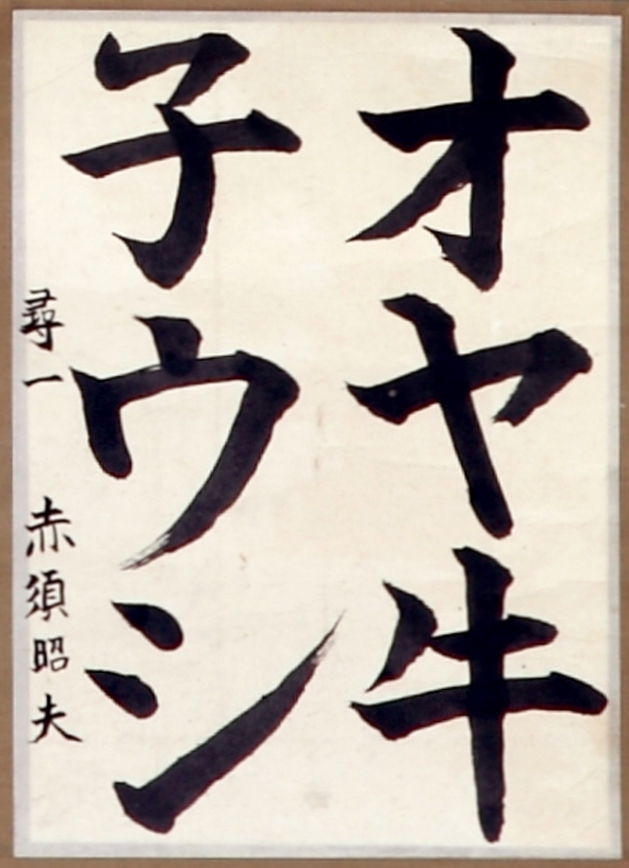 オヤ牛
子ウシ
尋一 赤須昭夫